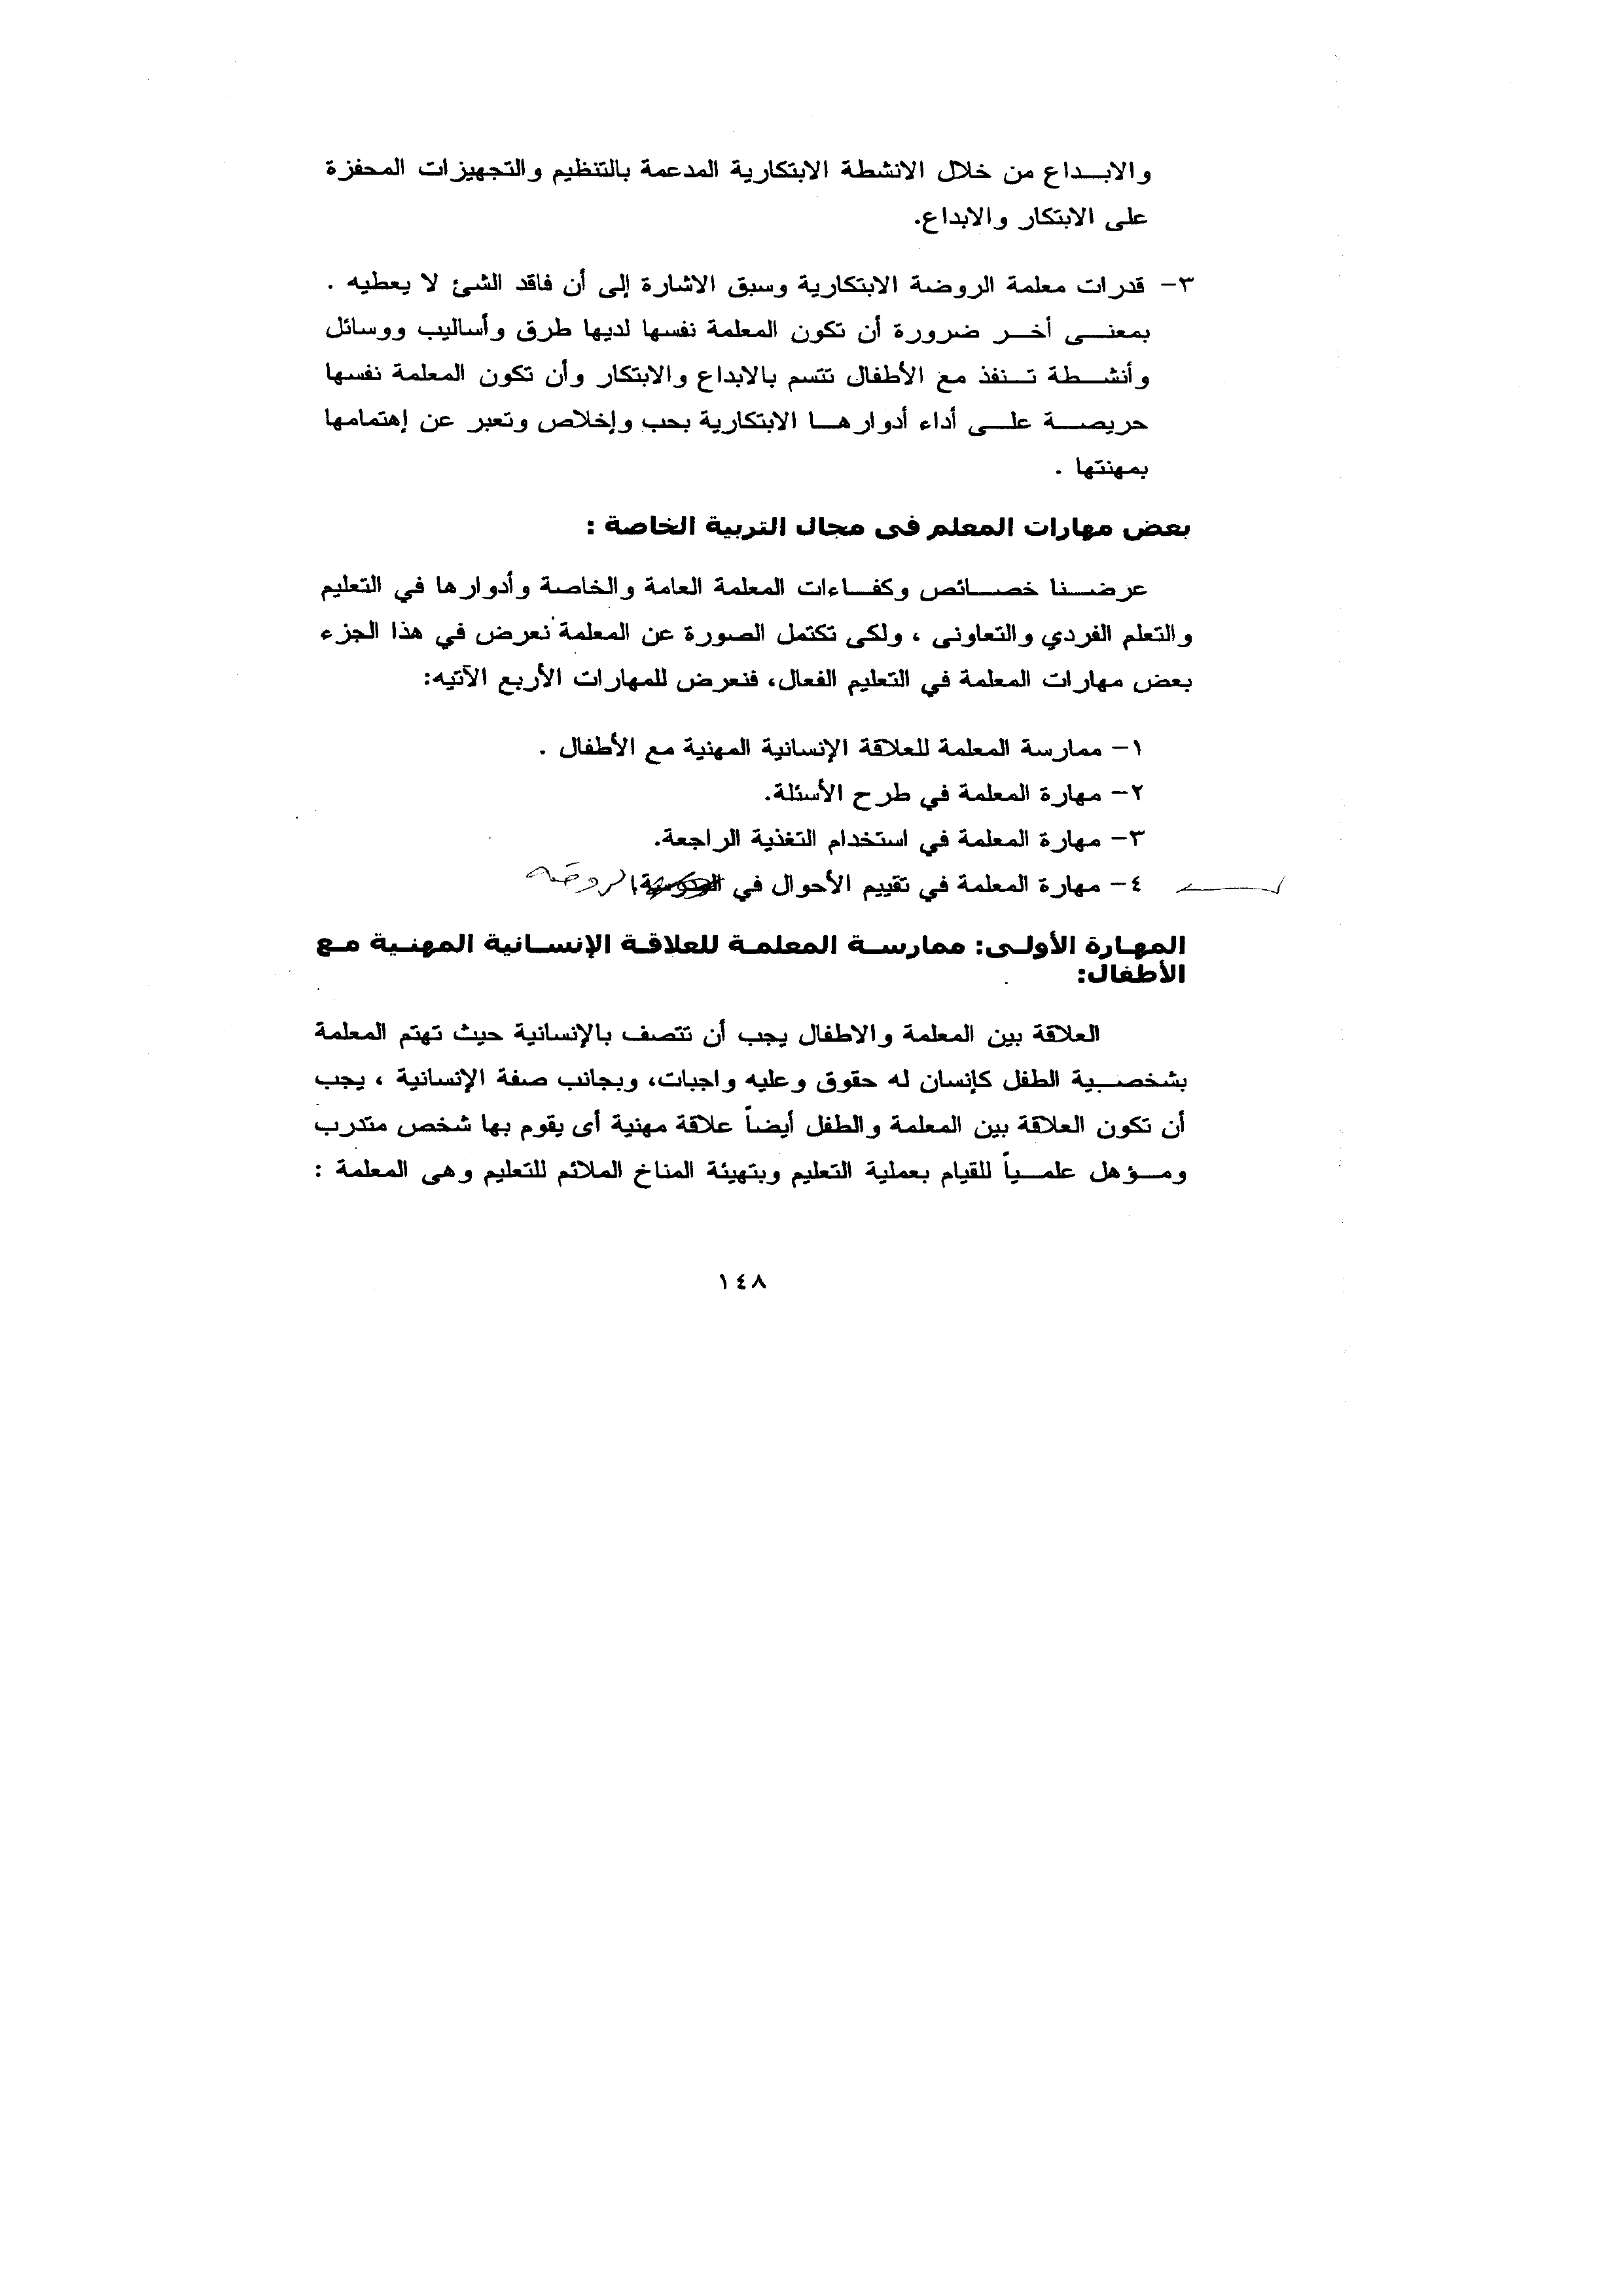 والابداع من خلال الانشطة الابتكارية المدعمة بالتنظيم والتجهيزات المحفزة
على الابتكار والابداع.
٣- قدرات معلمة الروضة الابتكارية وسبق الاشارة إلى أن فاقد الشئ لا يعطيه .
بمعنى أخر ضرورة أن تكون المعلمة نفسها لديها طرق وأساليب ووسائل
وأنشطة تنفذ مع الأطفال تتسم بالابداع والابتكار وأن تكون المعلمة نفسها
حريصة على أداء أدوارها الابتكارية بحب وإخلاص وتعبر عن إهتمامها
بمهنتها .
بعض مهارات المعلم فى مجال التربية الخاصة :
عرضنا خصائص وكفاءات المعلمة العامة والخاصة وأدوارها في التعليم
والتعلم الفردي والتعاونى ، ولكى تكتمل الصورة عن المعلمة نعرض في هذا الجزء
بعض مهارات المعلمة في التعليم الفعال، فنعرض للمهارات الأربع الآتيه:
١- ممارسة المعلمة للعلاقة الإنسانية المهنية مع الأطفال .
٢- مهارة المعلمة في طرح الأسئلة.
٣- مهارة المعلمة في استخدام التغذية الراجعة.
٤- مهارة المعلمة في تقييم الأحوال في الروضة
المهارة الأولى: ممارسة المعلمة للعلاقة الإنسانية المهنية مع
الأطفال:
العلاقة بين المعلمة والاطفال يجب أن تتصف بالإنسانية حيث تهتم المعلمة
بشخصية الطفل كإنسان له حقوق وعليه واجبات، وبجانب صفة الإنسانية ، يجب
أن تكون العلاقة بين المعلمة والطفل أيضاً علاقة مهنية أى يقوم بها شخص متدرب
ومؤهل علمياً للقيام بعملية التعليم وبتهيئة المناخ الملائم للتعليم وهى المعلمة :
١٤٨